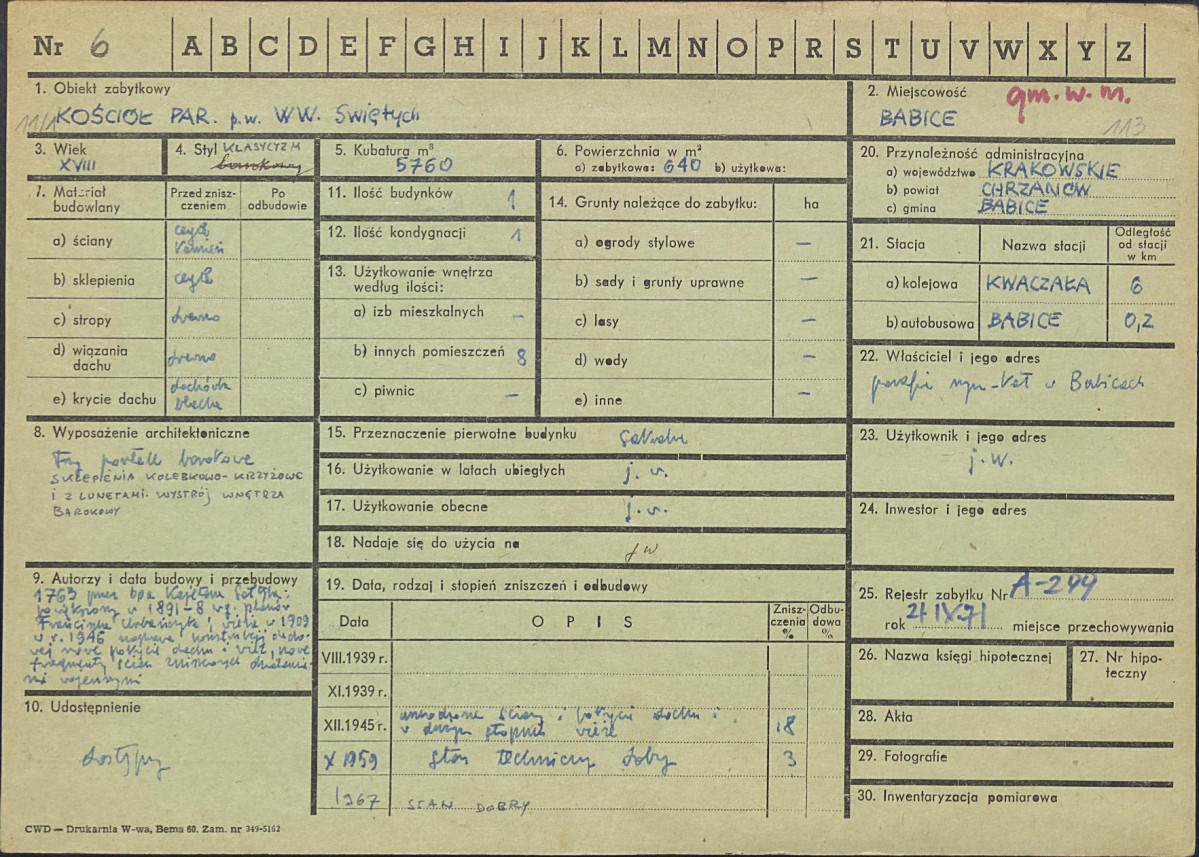 Nr 6 A B C D E F G H I J K L M N O P R S T U V W X Y Z
1. Obiekt zabytkowy
11/1 KOŚCIÓŁ PAR. p.w. WW. Świętych
2. Miejscowość gm. w. m.
BABICE 113
3. Wiek
XVIII
4. Styl KLASYCYZM
barokowy
5. Kubatura m³
5760
6. Powierzchnia w m²
a) zabytkowa: 640 b) użytkowa:
7. Materiał budowlany
Przed zniszczeniem
Po odbudowie
a) ściany cegła kamień
b) sklepienia cegła
c) stropy drewno
d) wiązania dachu drewno
e) krycie dachu dachówka blacha
11. Ilość budynków 1
12. Ilość kondygnacji 1
13. Użytkowanie wnętrza
według ilości:
a) izb mieszkalnych –
b) innych pomieszczeń 8
c) piwnic –
14. Grunty należące do zabytku: ha
a) ogrody stylowe –
b) sady i grunty uprawne –
c) lasy –
d) wody –
e) inne –
20. Przynależność administracyjna
a) województwo KRAKOWSKIE
b) powiat CHRZANÓW
c) gmina BABICE
21. Stacja
Nazwa stacji
Odległość
od stacji
w km
a) kolejowa KWACZAŁA 6
b) autobusowa BABICE 0,2
22. Właściciel i jego adres
parafia rzym-kat w Babicach
8. Wyposażenie architektoniczne
Trzy portale barokowe
SKLEPIENIA KOLEBKOWO-KRZYŻOWE
I Z LUNETAMI. WYSTRÓJ WNĘTRZA
BAROKOWY
15. Przeznaczenie pierwotne budynku sakralne
16. Użytkowanie w latach ubiegłych j. w.
17. Użytkowanie obecne j. w.
18. Nadaje się do użycia na jw
23. Użytkownik i jego adres
j.w.
24. Inwestor i jego adres
9. Autorzy i data budowy i przebudowy
1763 przez bpa Kajetana Sołtyka:
powiększony w 1891-8 wg. planów
Franciszka i wieża w 1909
w r. 1946 naprawa konstrukcji dacho-
wej nowe pokrycie dachu i wież, nowe
fragmenty ścian zniszczonych działania-
mi wojennymi
10. Udostępnienie
dostępny
19. Data, rodzaj i stopień zniszczeń i odbudowy
Data
O P I S
Zniszczenia %
Odbudowa %
VIII.1939 r.
XI.1939 r.
XII.1945 r. uszkodzone ściany i pokrycie dachu i
w dużym stopniu wieże 18
X 1959 Stan techniczny dobry 3
1967 STAN DOBRY
25. Rejestr zabytku Nr A-244
rok 21 IX.71 miejsce przechowywania
26. Nazwa księgi hipotecznej
27. Nr hipoteczny
28. Akta
29. Fotografie
30. Inwentaryzacja pomiarowa
CWD — Drukarnia W-wa, Bema 60. Zam. nr 349-5162